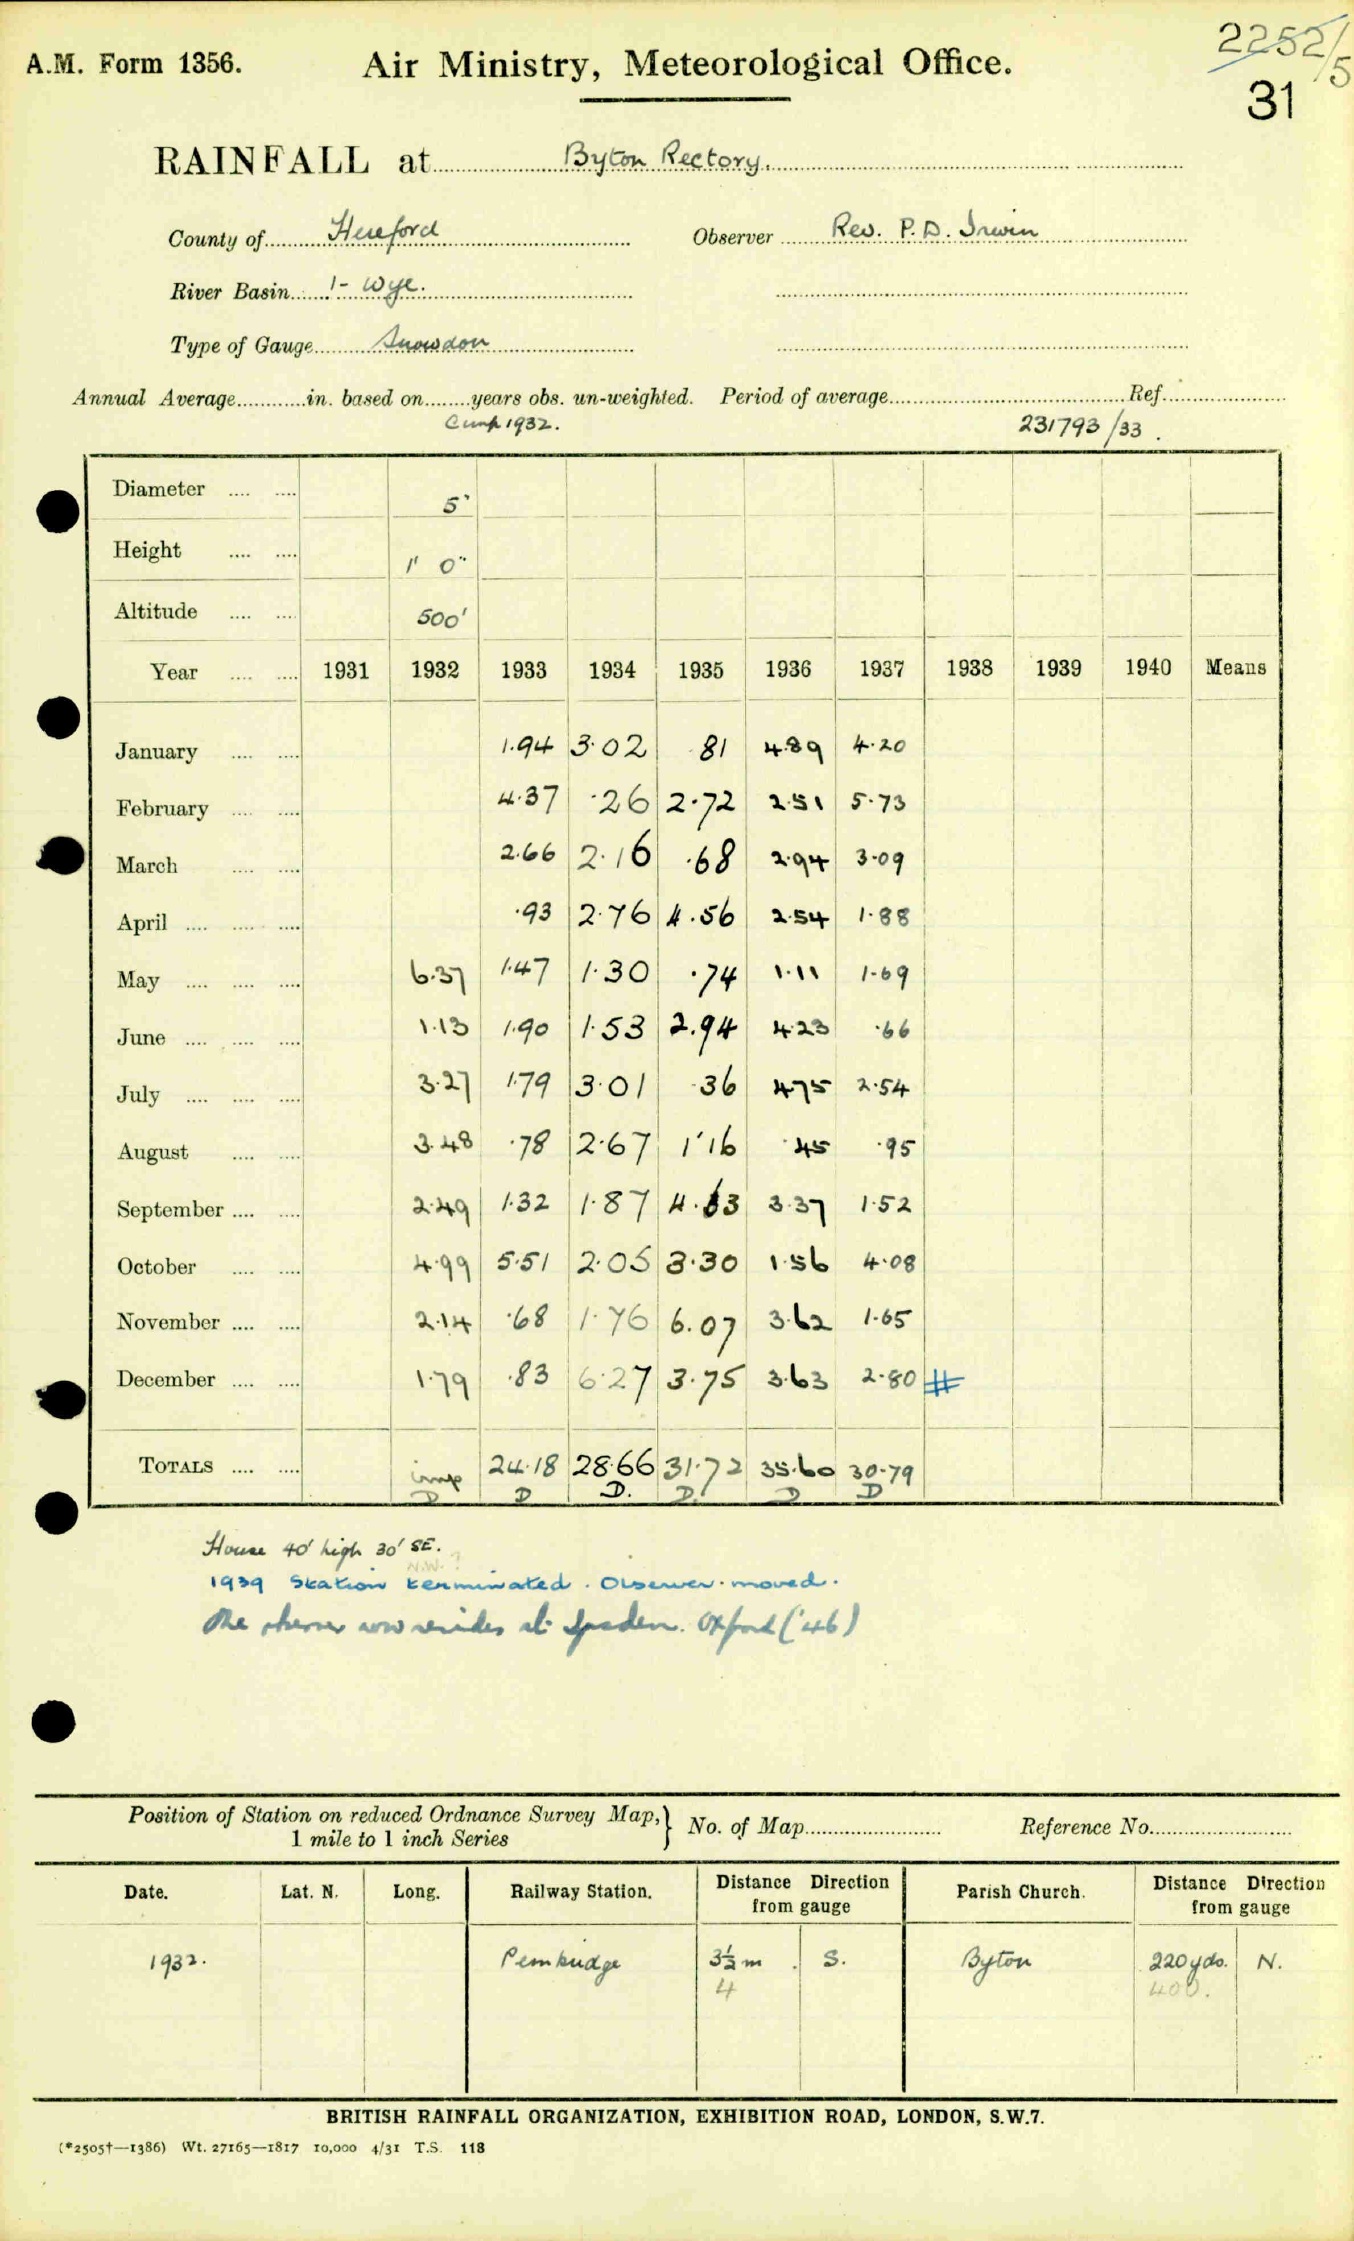 2252/5
A.M. Form 1356. Air Ministry, Meteorological Office.
31
RAINFALL at Byton Rectory.
County of Hereford Observer Rev. P. D. Irwin
River Basin 1- Wye.
Type of Gauge Snowdon
Annual Average in. based on years obs. un-weighted. Period of average Ref.
1932. 231793/33.
Diameter 5"
Height 1' 0"
Altitude 500'
Year 1931 1932 1933 1934 1935 1936 1937 1938 1939 1940 Means
January 1.94 3.02 .81 4.89 4.20
February 4.37 .26 2.72 2.51 5.73
March 2.66 2.16 .68 2.94 3.09
April .93 2.76 4.56 2.54 1.88
May 6.37 1.47 1.30 .74 1.11 1.69
June 1.13 1.90 1.53 2.94 4.23 .66
July 3.27 1.79 3.01 .36 4.75 2.54
August 3.48 .78 2.67 1.16 .45 .95
September 2.49 1.32 1.87 4.63 3.37 1.52
October 4.99 5.51 2.05 3.30 1.56 4.08
November 2.14 .68 1.76 6.07 3.62 1.65
December 1.79 .83 6.27 3.75 3.63 2.80 #
TOTALS imp 24.18 28.66 31.72 35.60 30.79
D D D. D. D D
House 40' high 30' SE.
N.W. ?
1939 Station terminated. Observer moved.
The observer now resides at Ipsden. Oxford ('46)
Position of Station on reduced Ordnance Survey Map, } No. of Map Reference No.
1 mile to 1 inch Series
Date. Lat. N. Long. Railway Station. Distance Direction from gauge Parish Church. Distance Direction from gauge
1932. Pembridge 3½ m. S. Byton 220 yds. N.
4 400.
BRITISH RAINFALL ORGANIZATION, EXHIBITION ROAD, LONDON, S.W.7.
(*2505†—1386) Wt. 27165—1817 10,000 4/31 T.S. 118